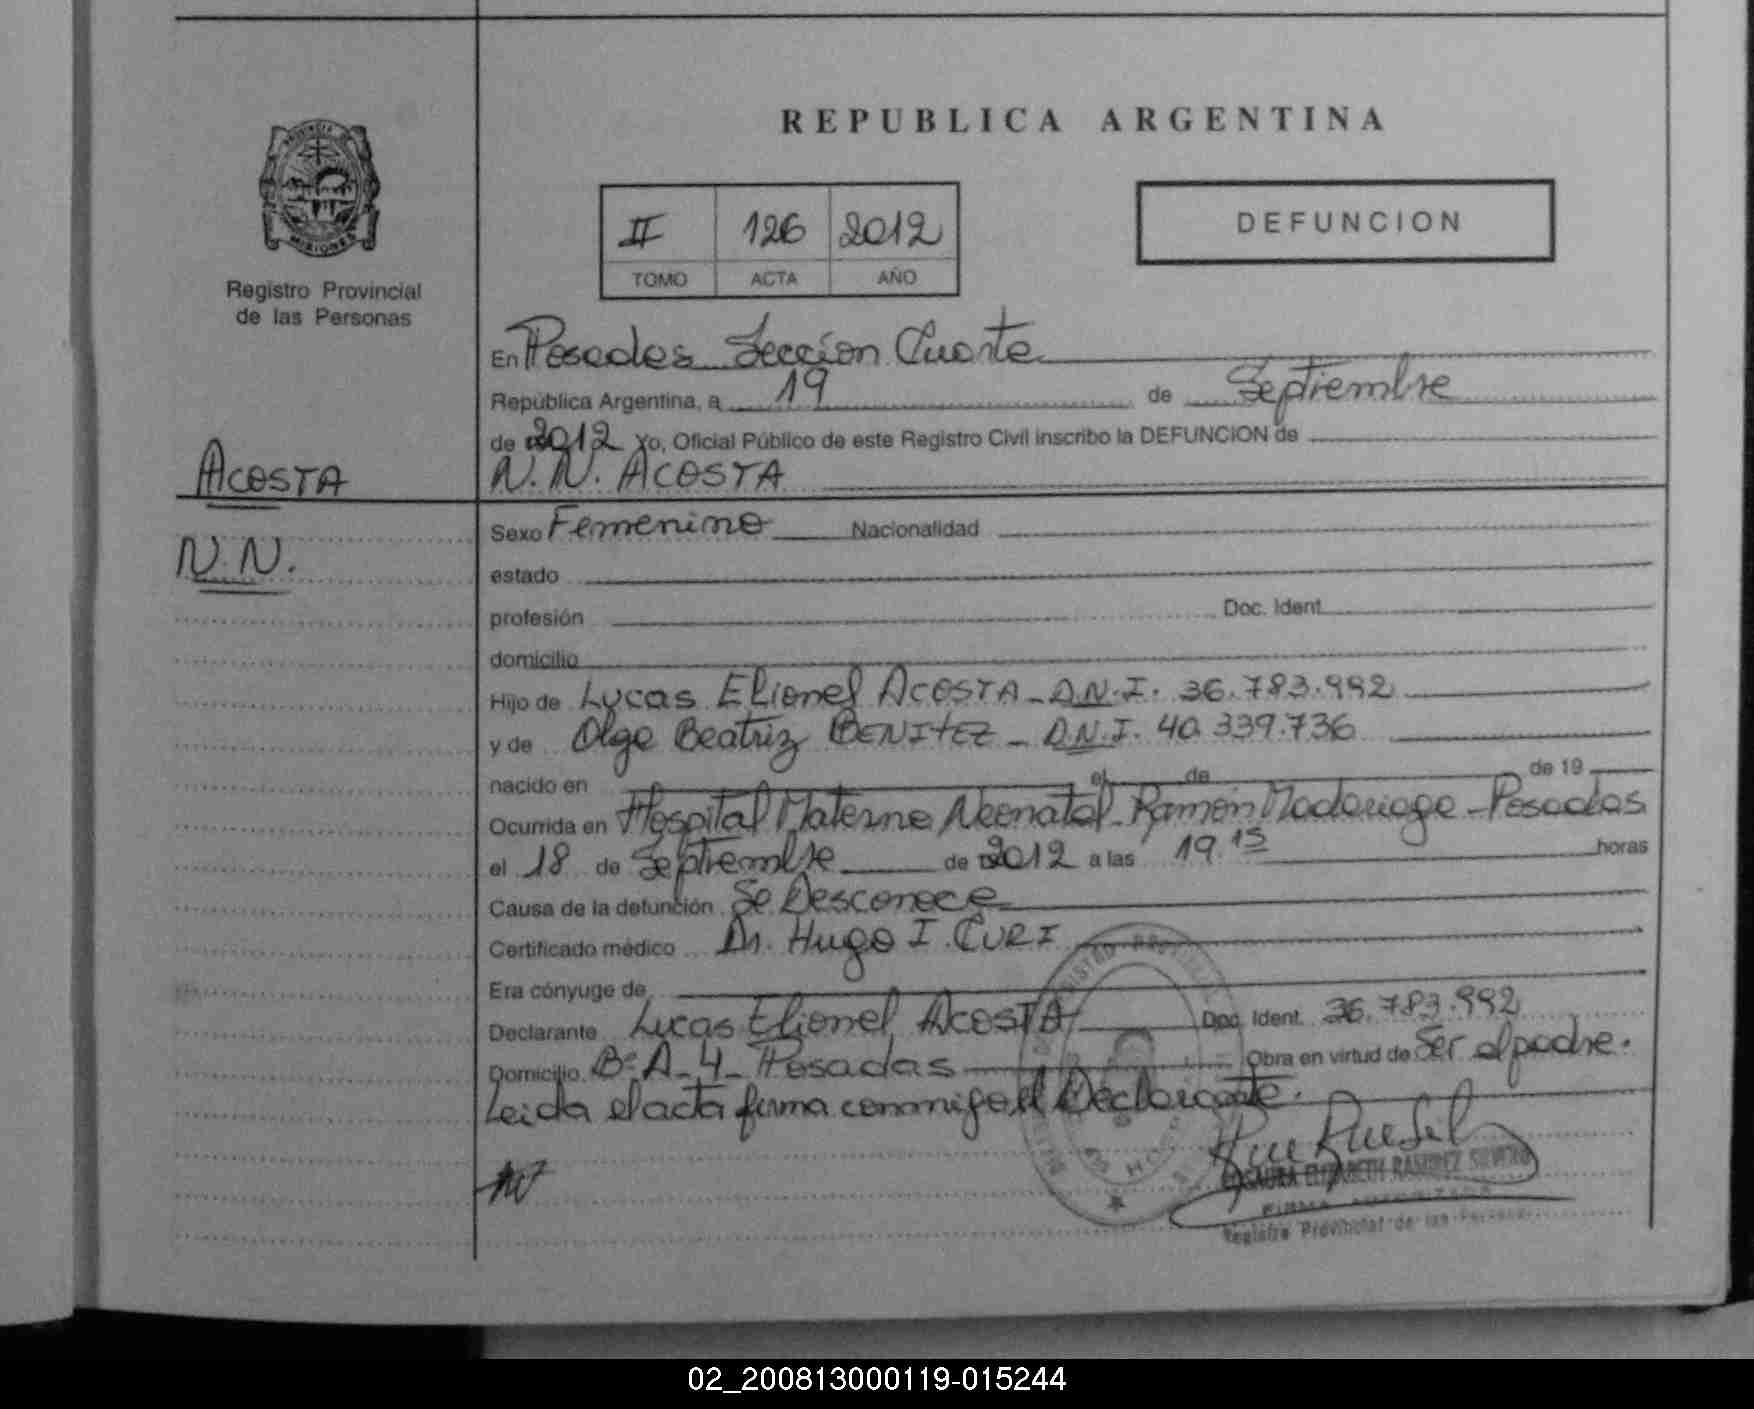 REPUBLICA ARGENTINA
PROVINCIA DE
MISIONES
Registro Provincial
de las Personas
II 126 2012
TOMO ACTA AÑO
DEFUNCION
En Posadas Seccion Cuarta
República Argentina, a 19 de Septiembre
de 2012 Yo, Oficial Público de este Registro Civil inscribo la DEFUNCION de
ACOSTA
N.N. ACOSTA
N.N.
Sexo Femenino Nacionalidad
estado
profesión Doc. Ident.
domicilio
Hijo de Lucas Elionel ACOSTA - D.N.I. 36.783.992
y de Olga Beatriz BENITEZ - D.N.I. 40.339.736
nacido en el de de 19
Ocurrida en Hospital Materno Neonatal - Ramón Madariaga - Posadas
el 18 de Septiembre de 2012 a las 19.15 horas
Causa de la defunción Se Desconoce
Certificado médico Dr. Hugo I. CURI
Era cónyuge de
Declarante Lucas Elionel ACOSTA Doc. Ident. 36.783.992
Domicilio Bº A-4 - Posadas Obra en virtud de Ser el padre.
Leida el acta firma conmigo el Declarante.
ROSAURA ELIZABETH RAMIREZ SILVERO
FIRMA AUTORIZADA
Registro Provincial de las Personas
02_200813000119-015244